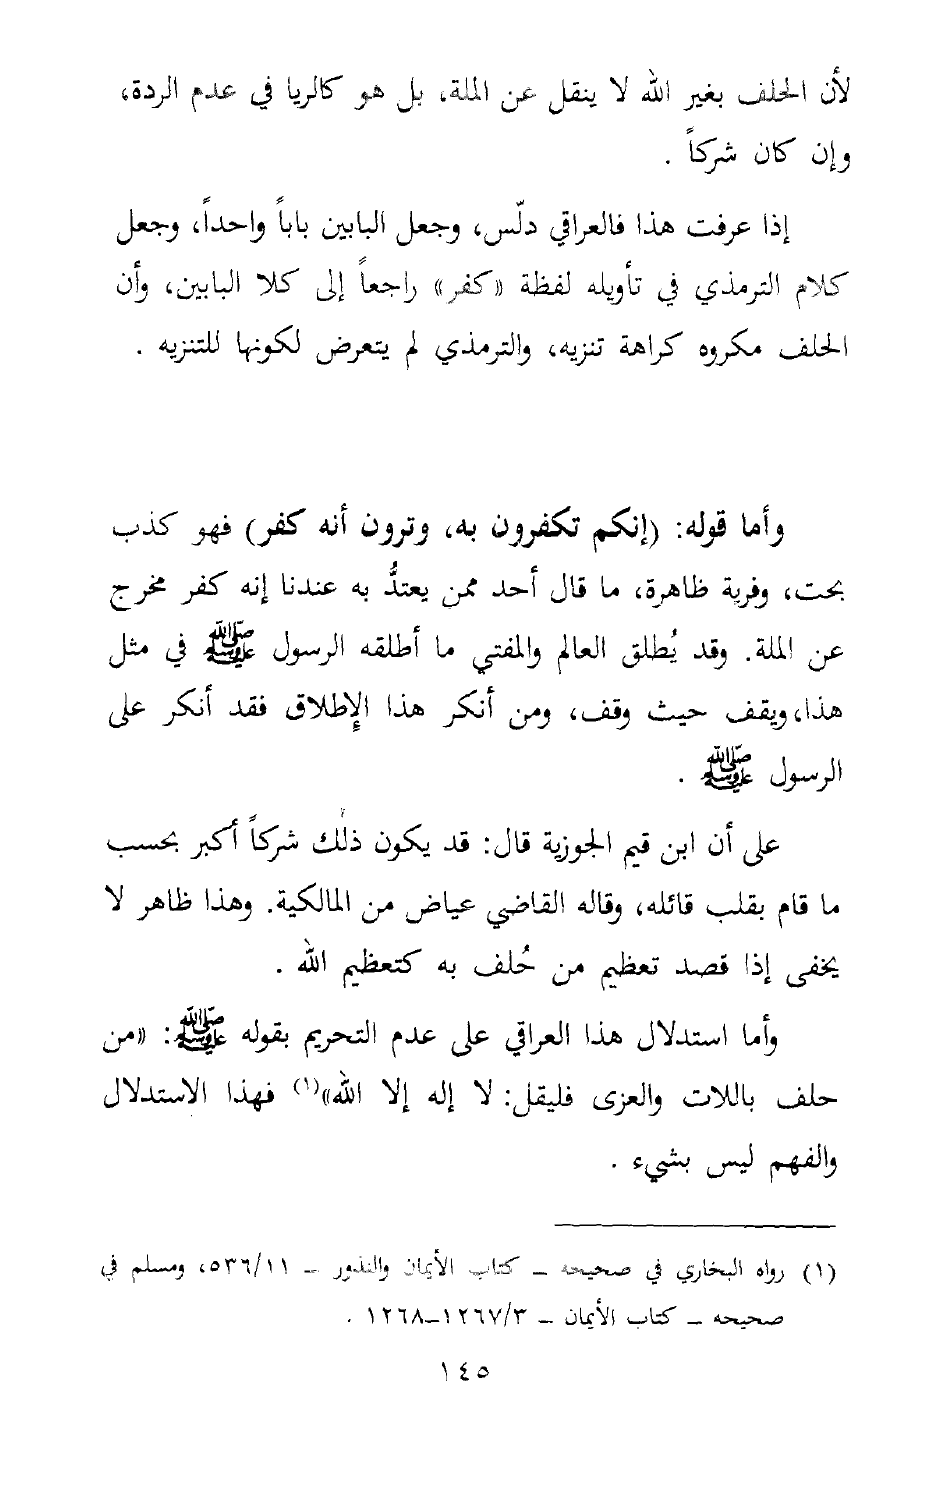 لأن الحلف بغير الله لا ينقل عن الملة، بل هو كالريا في عدم الردة،
وإن كان شركاً .
إذا عرفت هذا فالعراقي دلّس، وجعل البابين باباً واحداً، وجعل
كلام الترمذي في تأويله لفظة «كفر» راجعاً إلى كلا البابين، وأن
الحلف مكروه كراهة تنزيه، والترمذي لم يتعرض لكونها للتنزيه .
وأما قوله: (إنكم تكفرون به، وترون أنه كفر) فهو كذب
بحت، وفرية ظاهرة، ما قال أحد ممن يعتدُّ به عندنا إنه كفر مخرج
عن الملة. وقد يُطلق العالم والمفتي ما أطلقه الرسول ﷺ في مثل
هذا، ويقف حيث وقف، ومن أنكر هذا الإطلاق فقد أنكر على
الرسول ﷺ .
على أن ابن قيم الجوزية قال: قد يكون ذلك شركاً أكبر بحسب
ما قام بقلب قائله، وقاله القاضي عياض من المالكية. وهذا ظاهر لا
يخفى إذا قصد تعظيم من حُلف به كتعظيم الله .
وأما استدلال هذا العراقي على عدم التحريم بقوله ﷺ: «من
حلف باللات والعزى فليقل: لا إله إلا الله»(١) فهذا الاستدلال
والفهم ليس بشيء .
(١) رواه البخاري في صحيحه – كتاب الأيمان والنذور – ٥٣٦/١١، ومسلم في
صحيحه – كتاب الأيمان – ١٢٦٧/٣–١٢٦٨ .
١٤٥